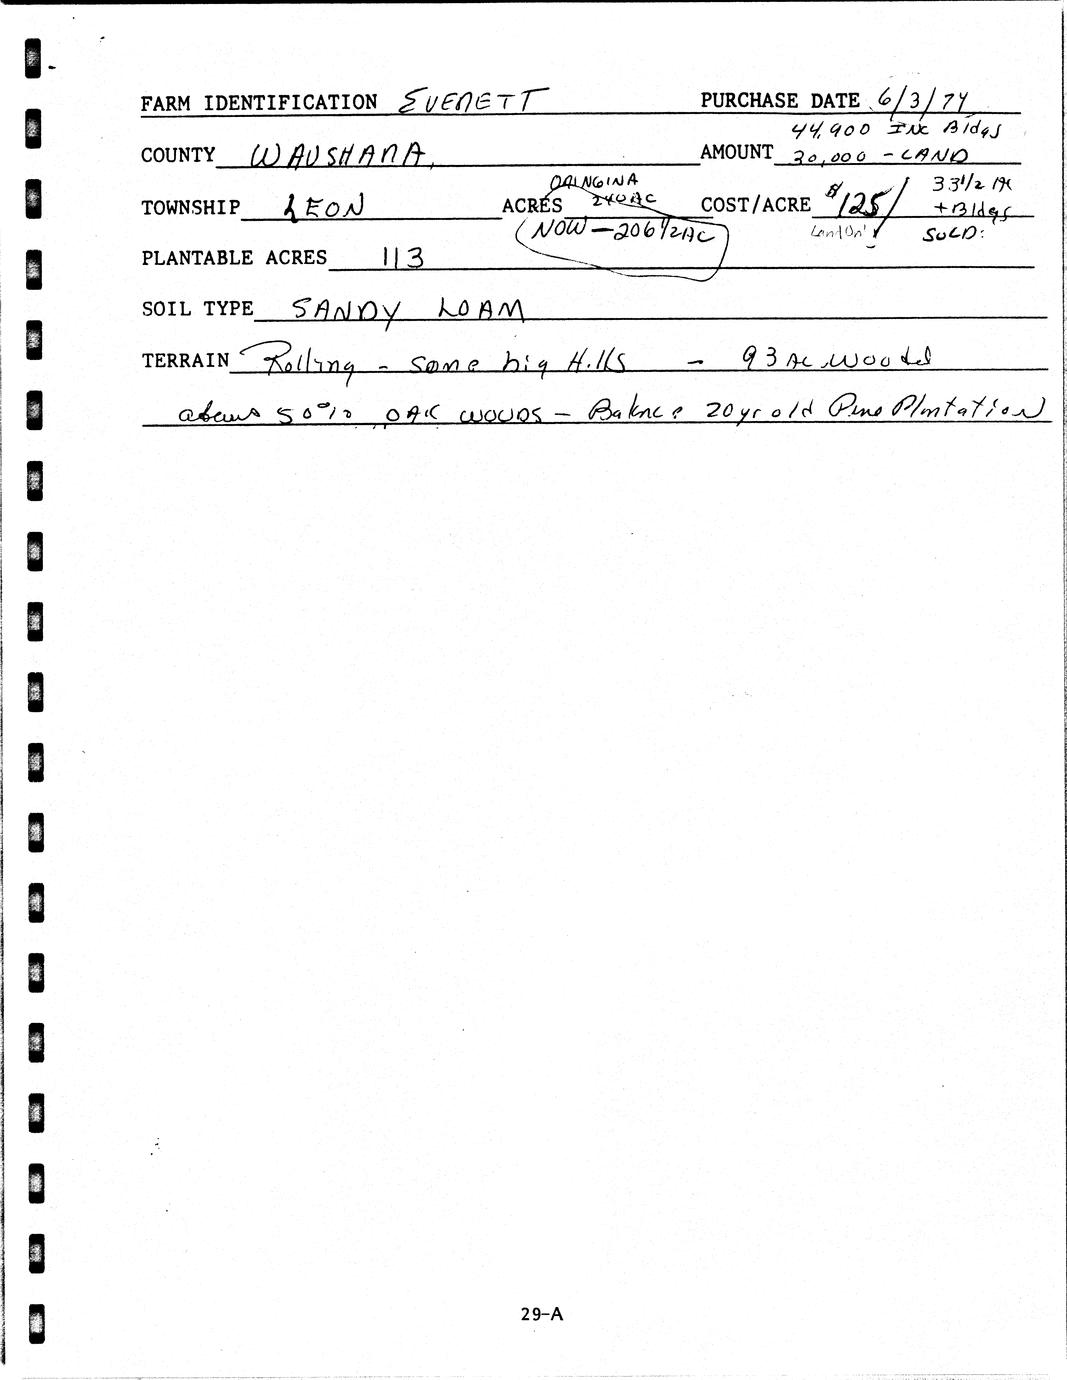 FARM IDENTIFICATION EVERETT PURCHASE DATE 6/3/74
44,900 INC Bldgs
COUNTY WAUSHARA, AMOUNT 30,000 - LAND
ORINGINA
240 AC
TOWNSHIP LEON ACRES COST/ACRE $125/ 33 1/2 AC
+ Bldgs
Land Only SOLD:
NOW - 206 1/2 AC
PLANTABLE ACRES 113
SOIL TYPE SANDY LOAM
TERRAIN Rolling - some big Hills - 93 AC Wooded
about 50% OAK WOODS - Balance 20 yr old Pine Plantation
29-A